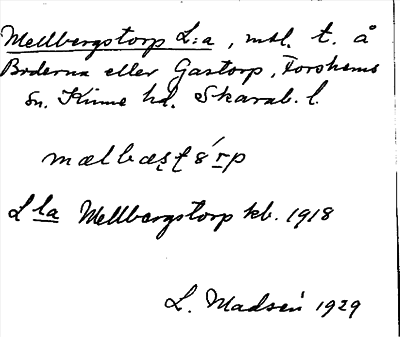 Mellbergstorp L:a, mtl. t. å
Boderna eller Gastorp, Forshems
sn. Kinne hd. Skarab. l.
mælbæʂʈ8́rp
L la Mellbergstorp kb. 1918
L. Madsén 1929